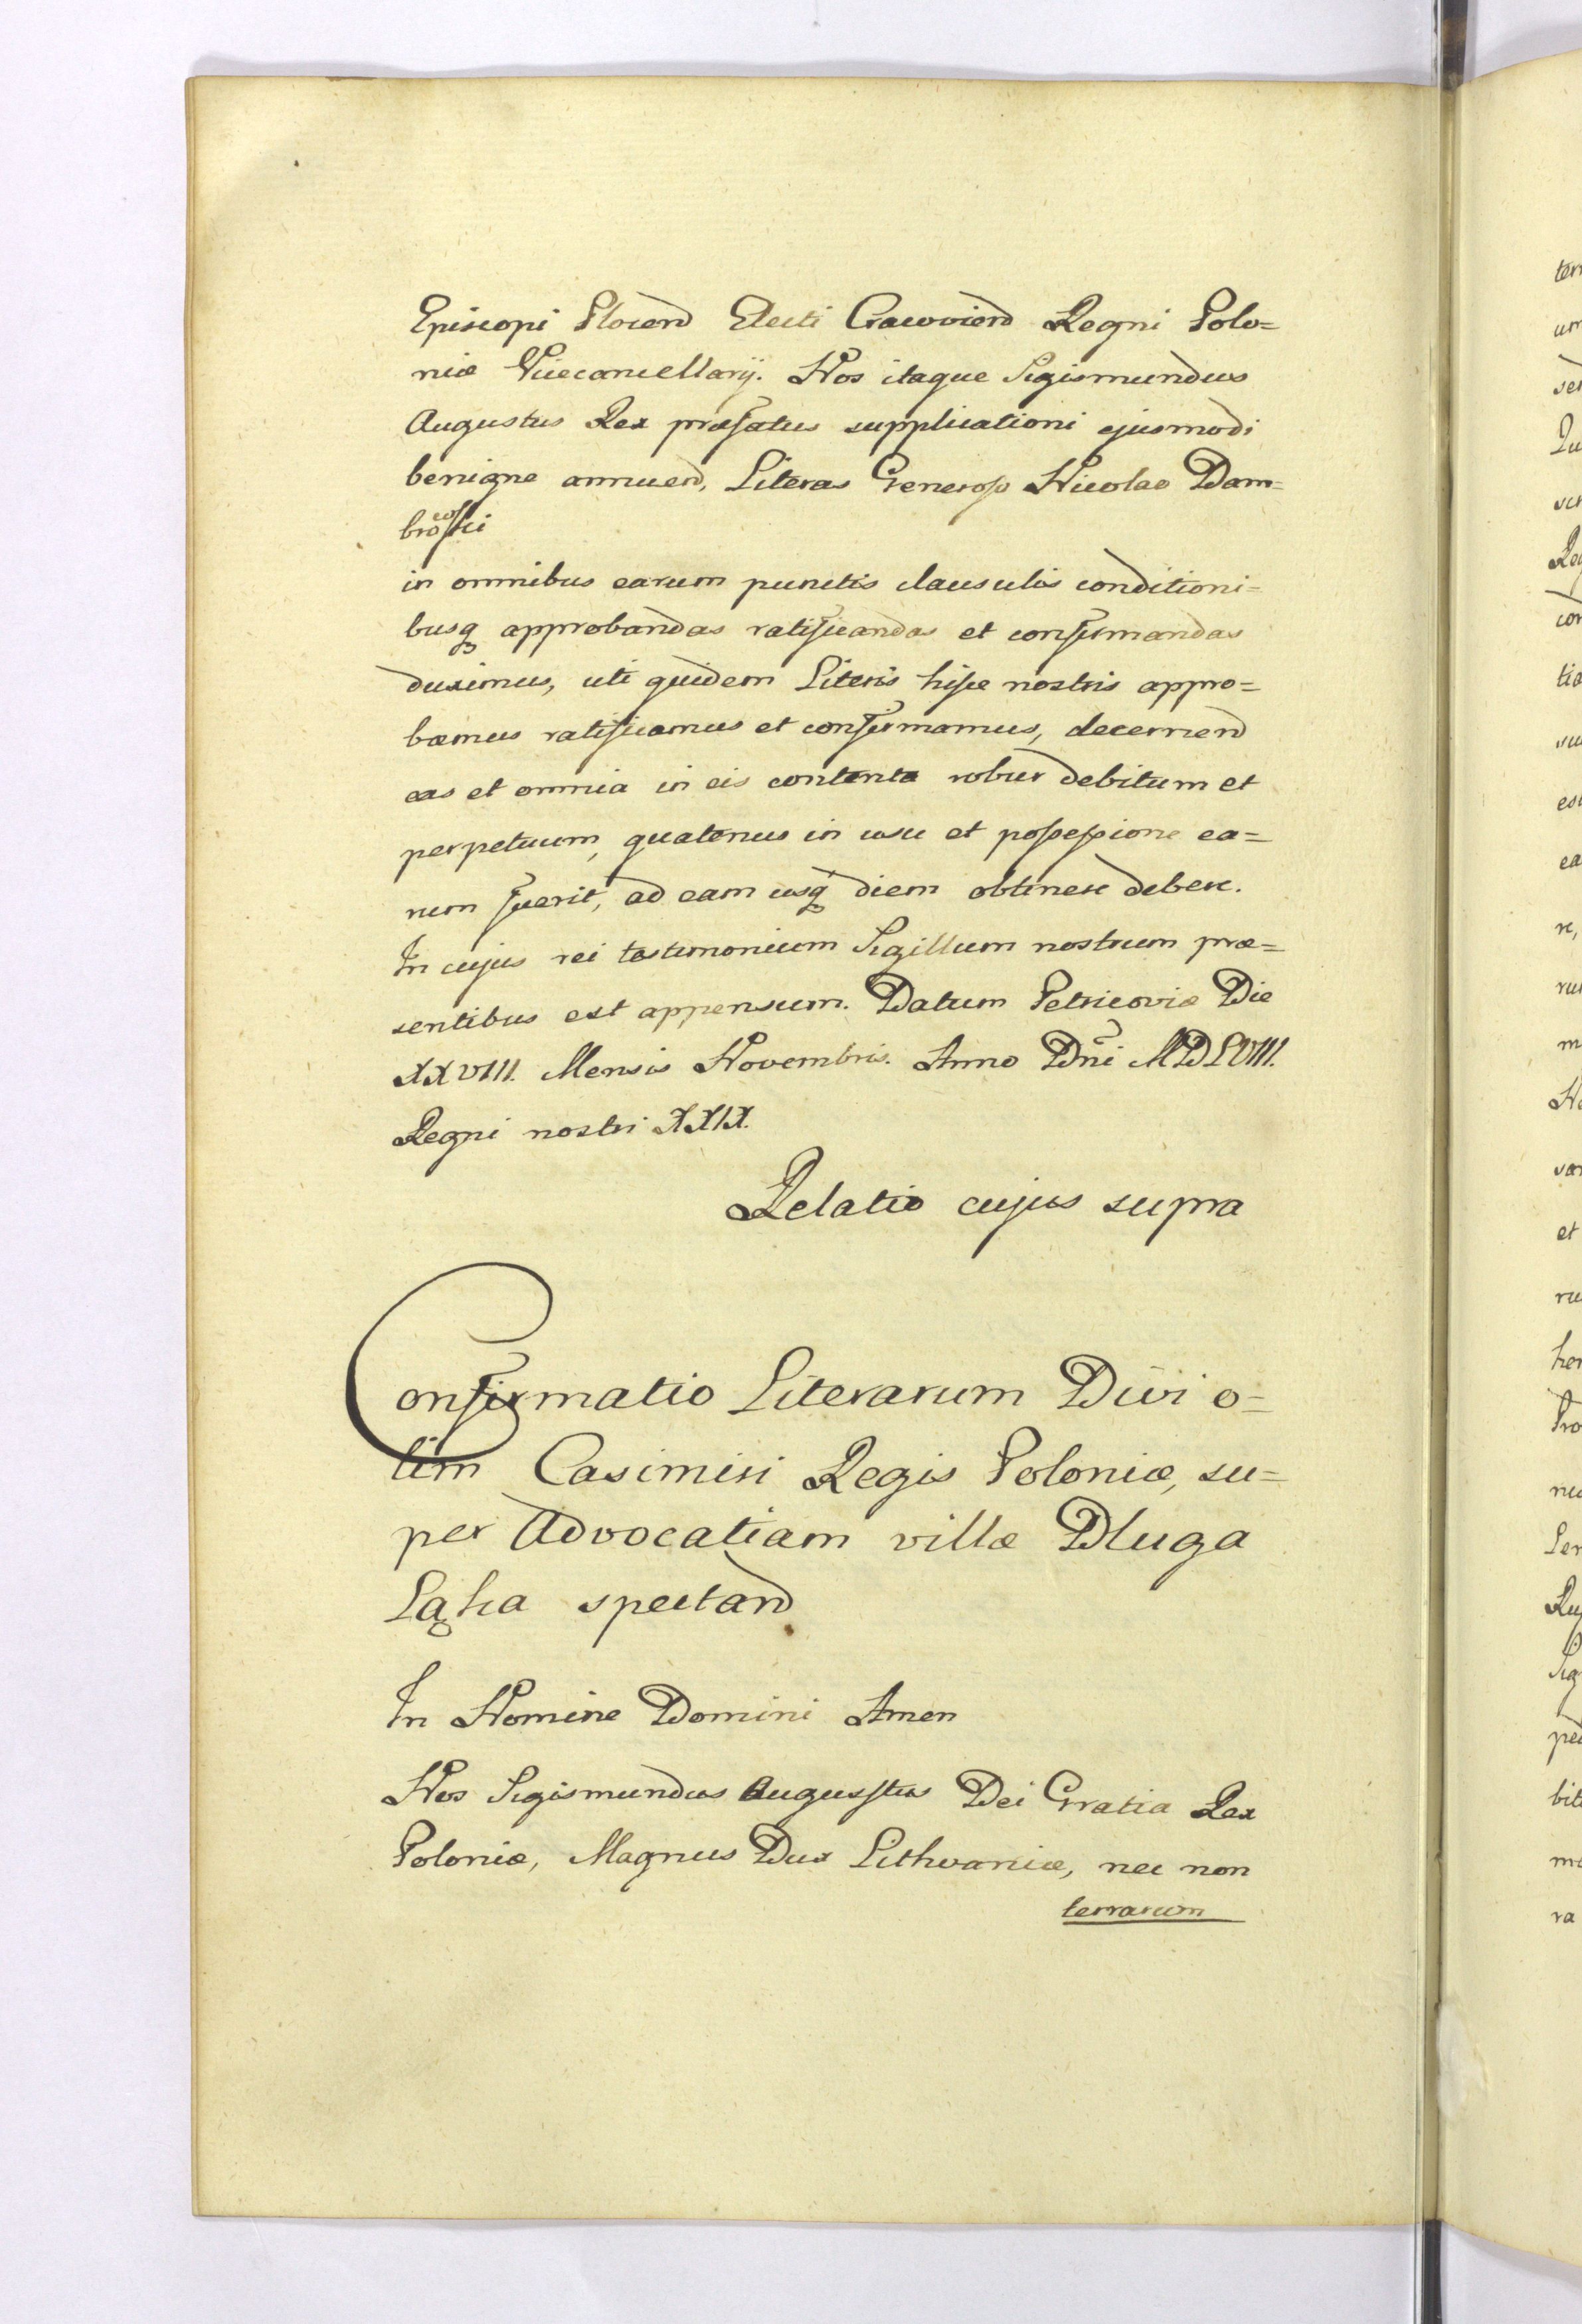 Episcopi Plocen̄ Electi Cracovien̄ Regni Polo=
niæ Vicecancellarij. Nos itaque Sigismundus
Augustus Rex præfatus supplicationi ejusmodi
benigne annuen̄, Literas Generoso Nicolao Dam=
in omnibus earum punctis clausulis conditioni=
busq approbandas ratificandas et confirmandas
duximus, uti quidem Literis hisce nostris appro=
bamus ratificamus et confirmamus, decernen̄
eas et omnia in eis contenta robur debitum et
perpetuum, quatenus in usu et possessione ea=
rum fuerit, ad eam usq diem obtinere debere.
In cujus rei testimonium Sigillum nostrum præ=
sentibus est appensum. Datum Petricoviæ Die
XXVIII. Mensis Novembris. Anno Dni MDLVIII.
Regni nostri XXIX.
Relatio cujus supra
Confirmatio Literarum Divi o=
lim Casimiri Regis Poloniæ, su=
per Advocatiam villæ Dluga
Ląka spectan̄
In Nomine Domini Amen
Nos Sigismundus Augusstus Dei Gratia Rex
Poloniæ, Magnus Dux Lithvaniæ, nec non
terrarum